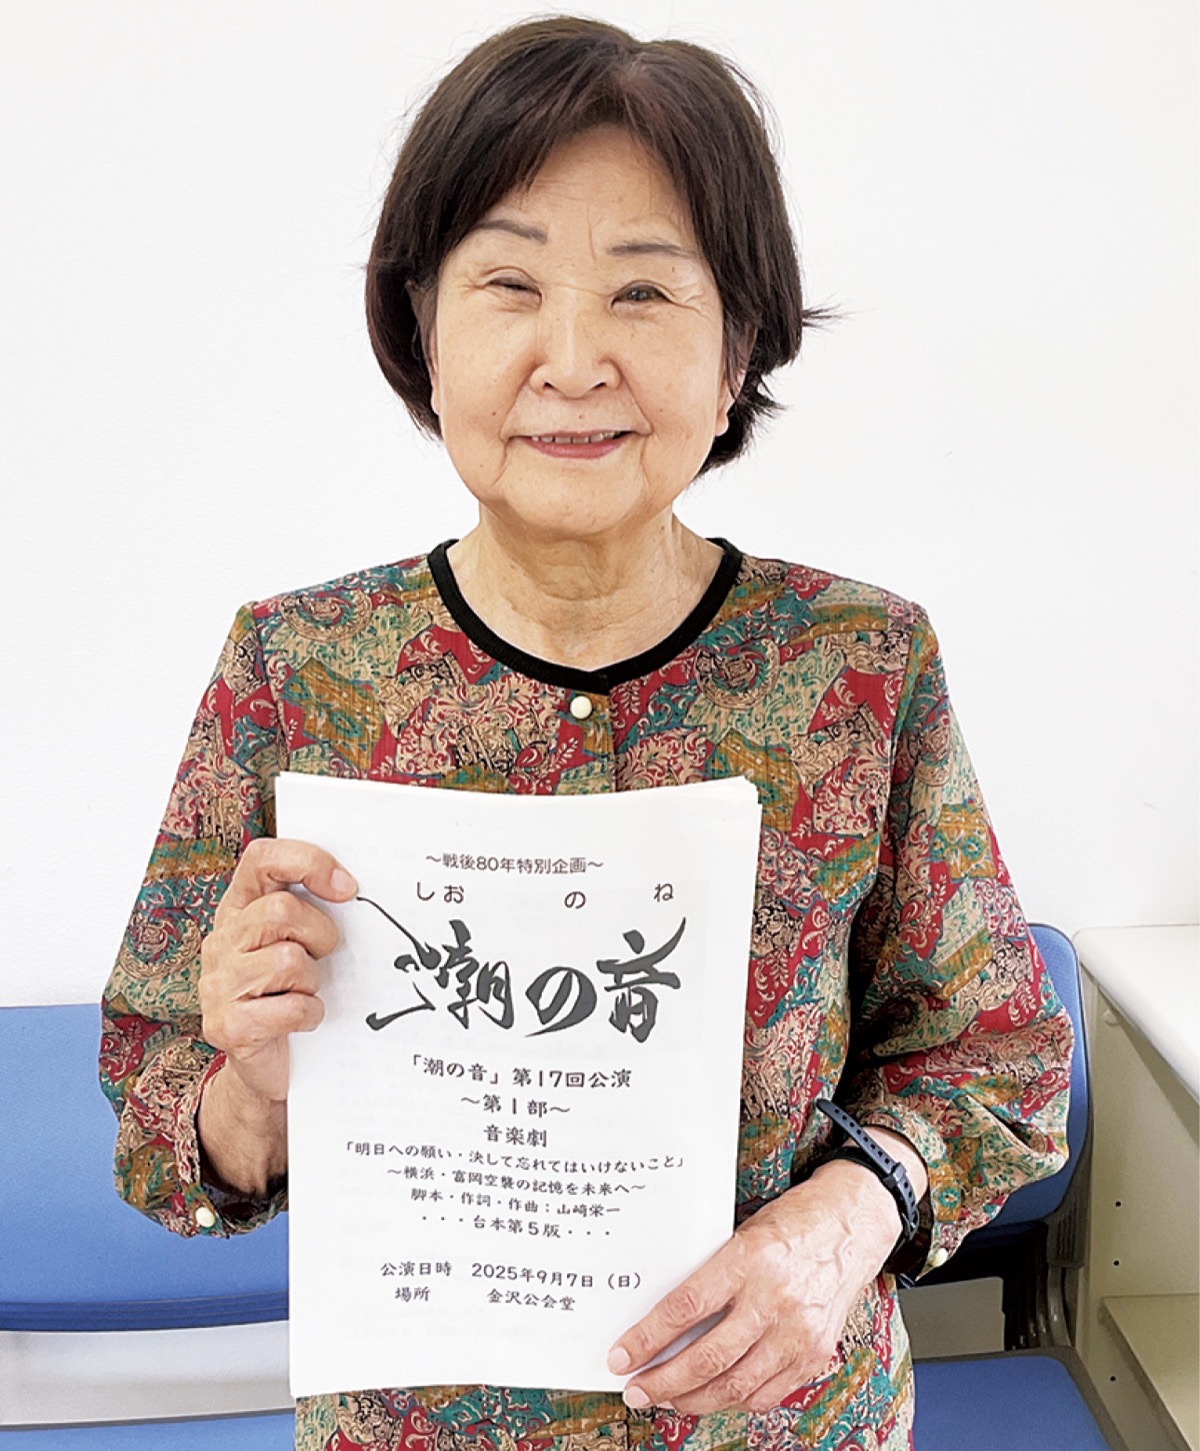 ～戦後80年特別企画～
しお の ね
潮の音
「潮の音」第17回公演
～第1部～
音楽劇
「明日への願い・決して忘れてはいけないこと」
～横浜・富岡空襲の記憶を未来へ～
脚本・作詞・作曲：山﨑栄一
・・・台本第5版・・・
公演日時 2025年9月7日（日）
場所 金沢公会堂